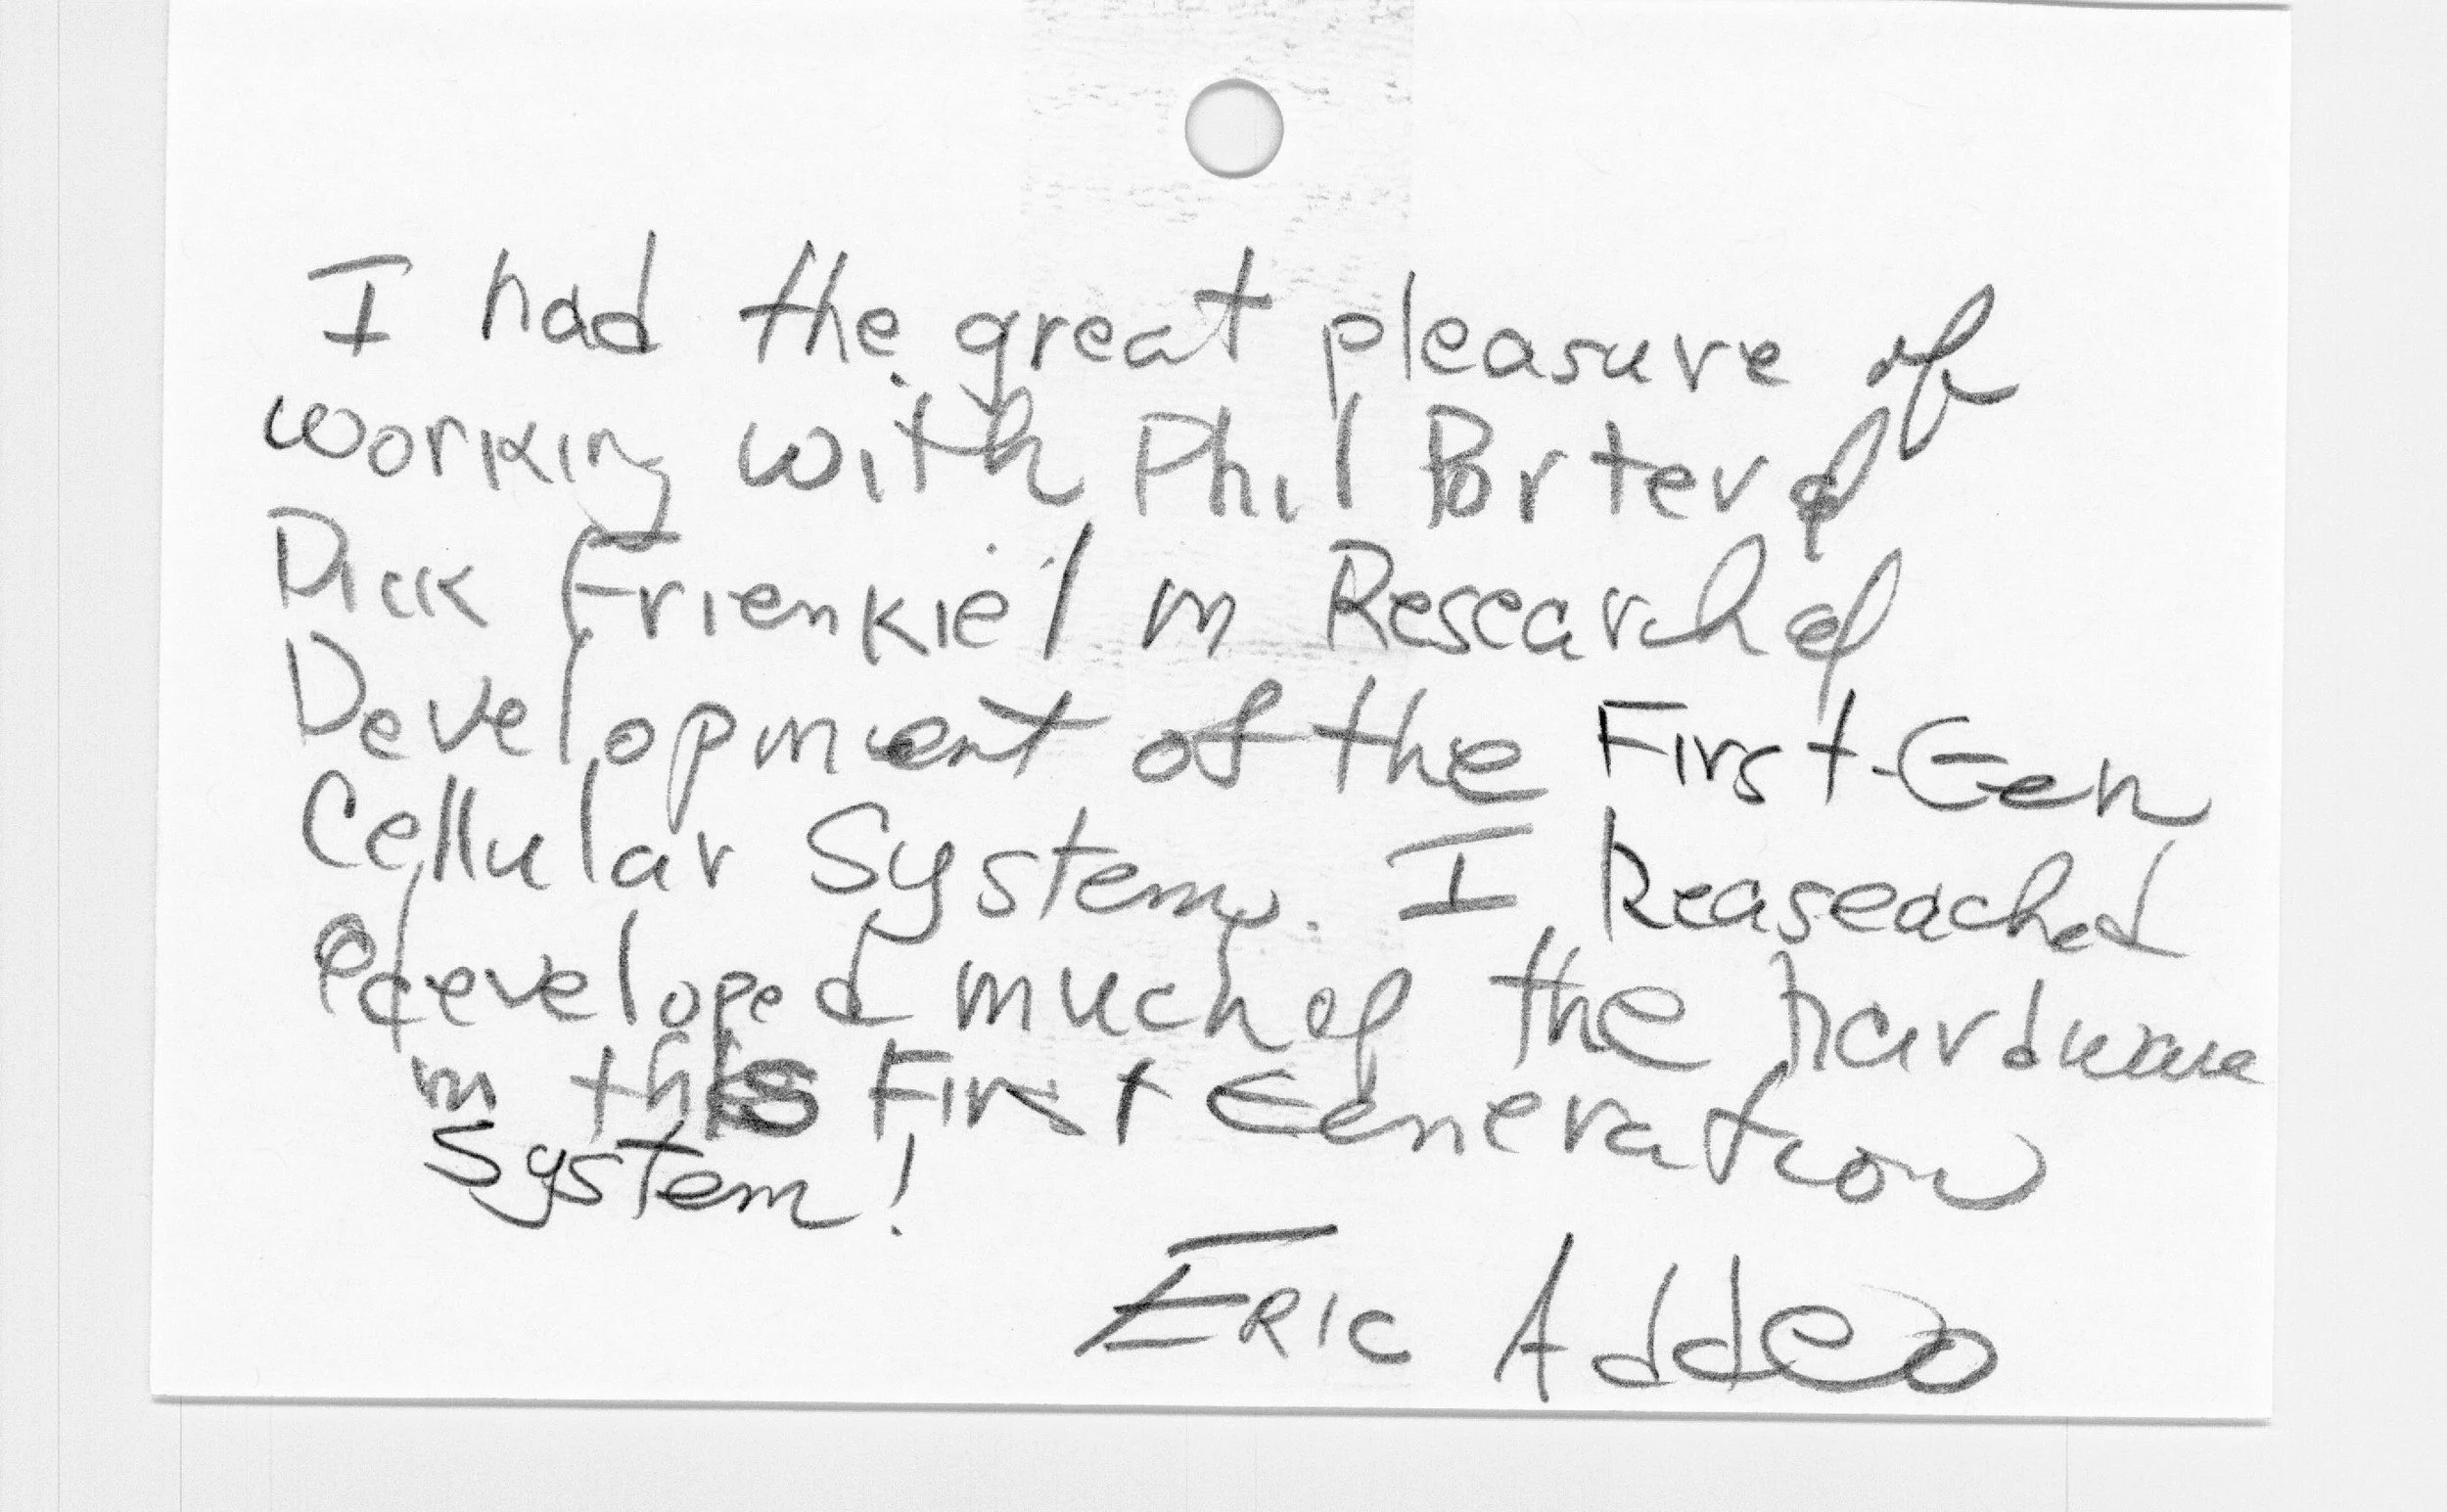 I had the great pleasure of
working with Phil Porter &
Dick Frienkiel in Research &
Development of the First-Gen
Cellular System. I Reaseached
& developed much of the hardware
in this First Generation
System!
Eric Addeo